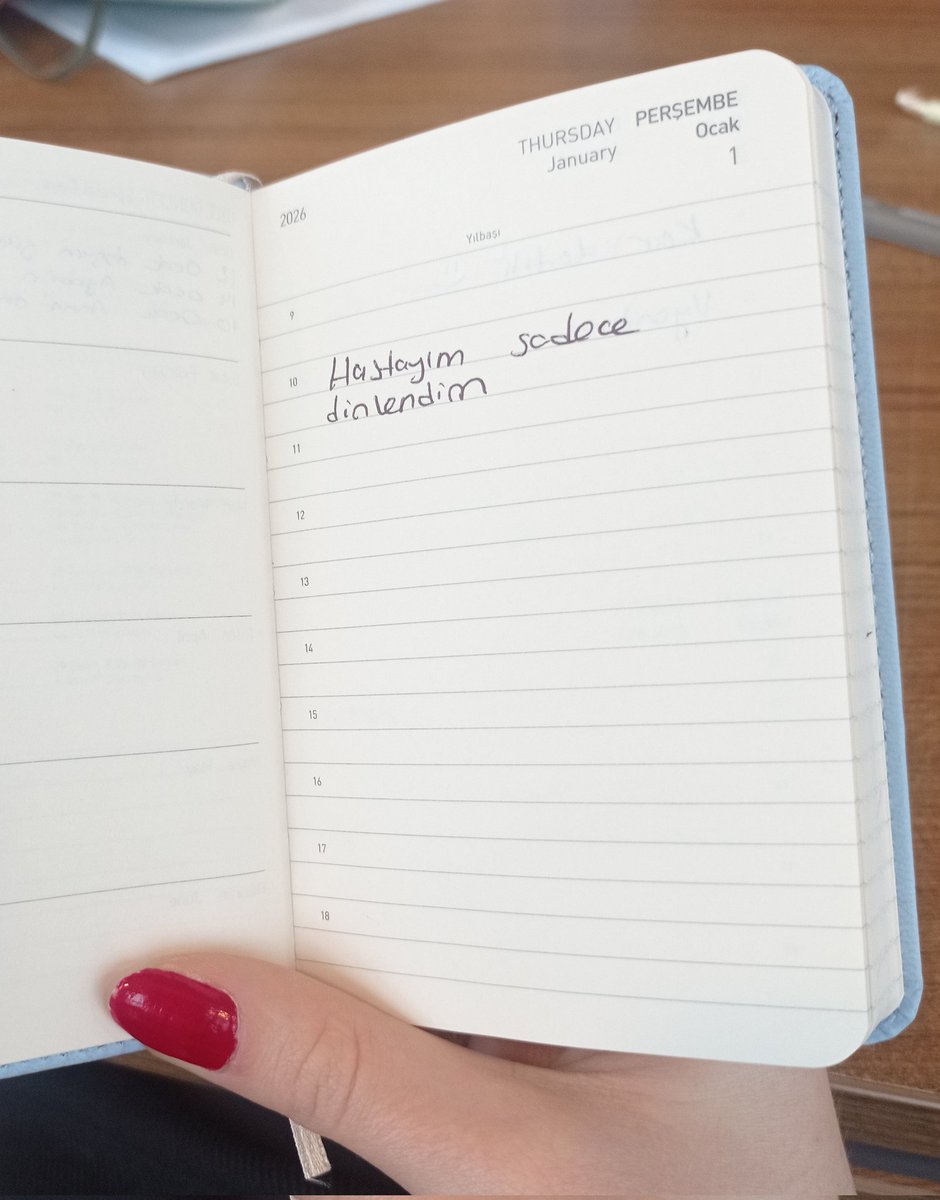 THURSDAY PERŞEMBE
January Ocak
1
2026
Yılbaşı
9
10 Hastayım sadece
dinlendim
11
12
13
14
15
16
17
18